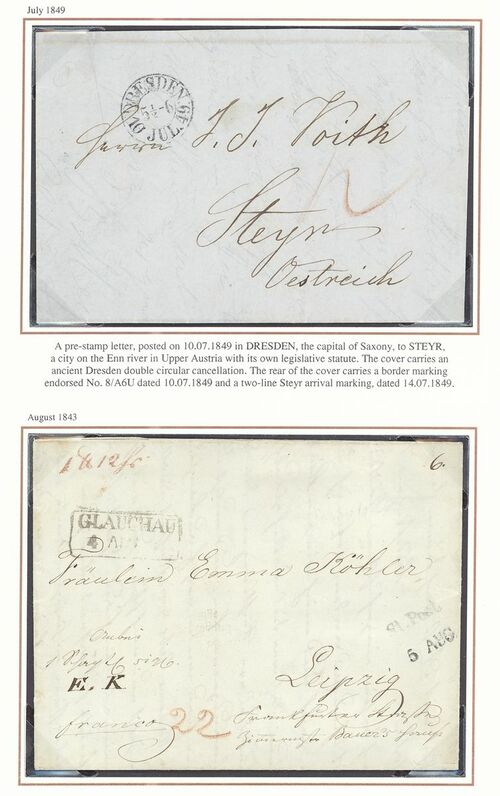 July 1849
DRESDEN
5½-6
10 JUL 49
Herrn J. J. Voith
Steyr
Oestreich
A pre-stamp letter, posted on 10.07.1849 in DRESDEN, the capital of Saxony, to STEYR,
a city on the Enn river in Upper Austria with its own legislative statute. The cover carries an
ancient Dresden double circular cancellation. The rear of the cover carries a border marking
endorsed No. 8/A6U dated 10.07.1849 and a two-line Steyr arrival marking, dated 14.07.1849.
August 1843
6.
GLAUCHAU
4 AUG
Fräulein Emma Köhler
St. Post
5 AUG
E. K
Leipzig
franco 22 Frankfurter Straße
Bauers